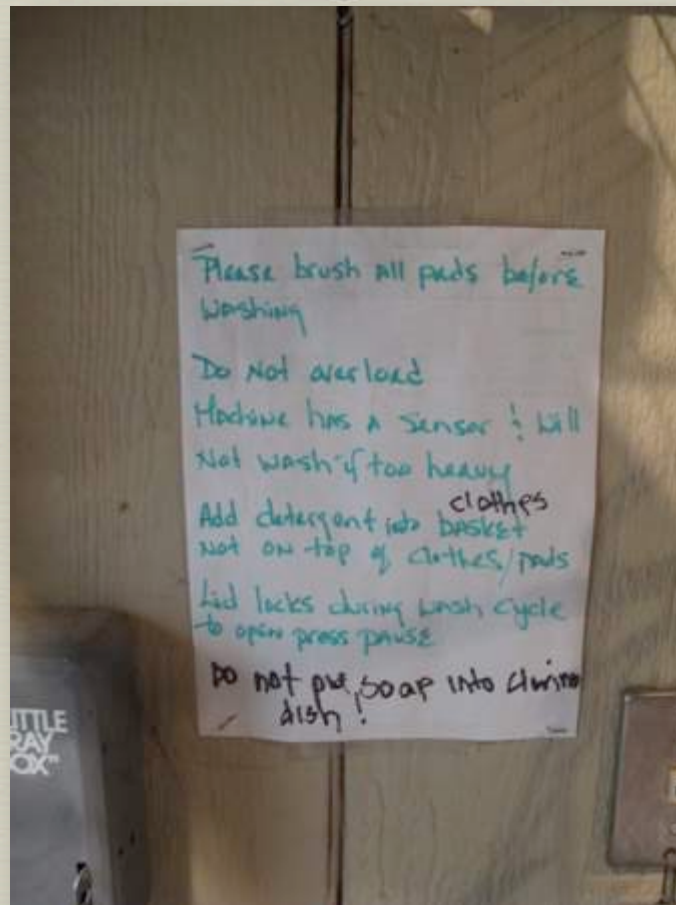 Please brush all pads before
washing
Do not overload
Machine has a sensor & will
not wash if too heavy
clothes
Add detergent into basket
not on top of clothes/pads
Lid locks during wash cycle
to open press pause
Do not put soap into
dish!
ITTLE
RAY
OX™